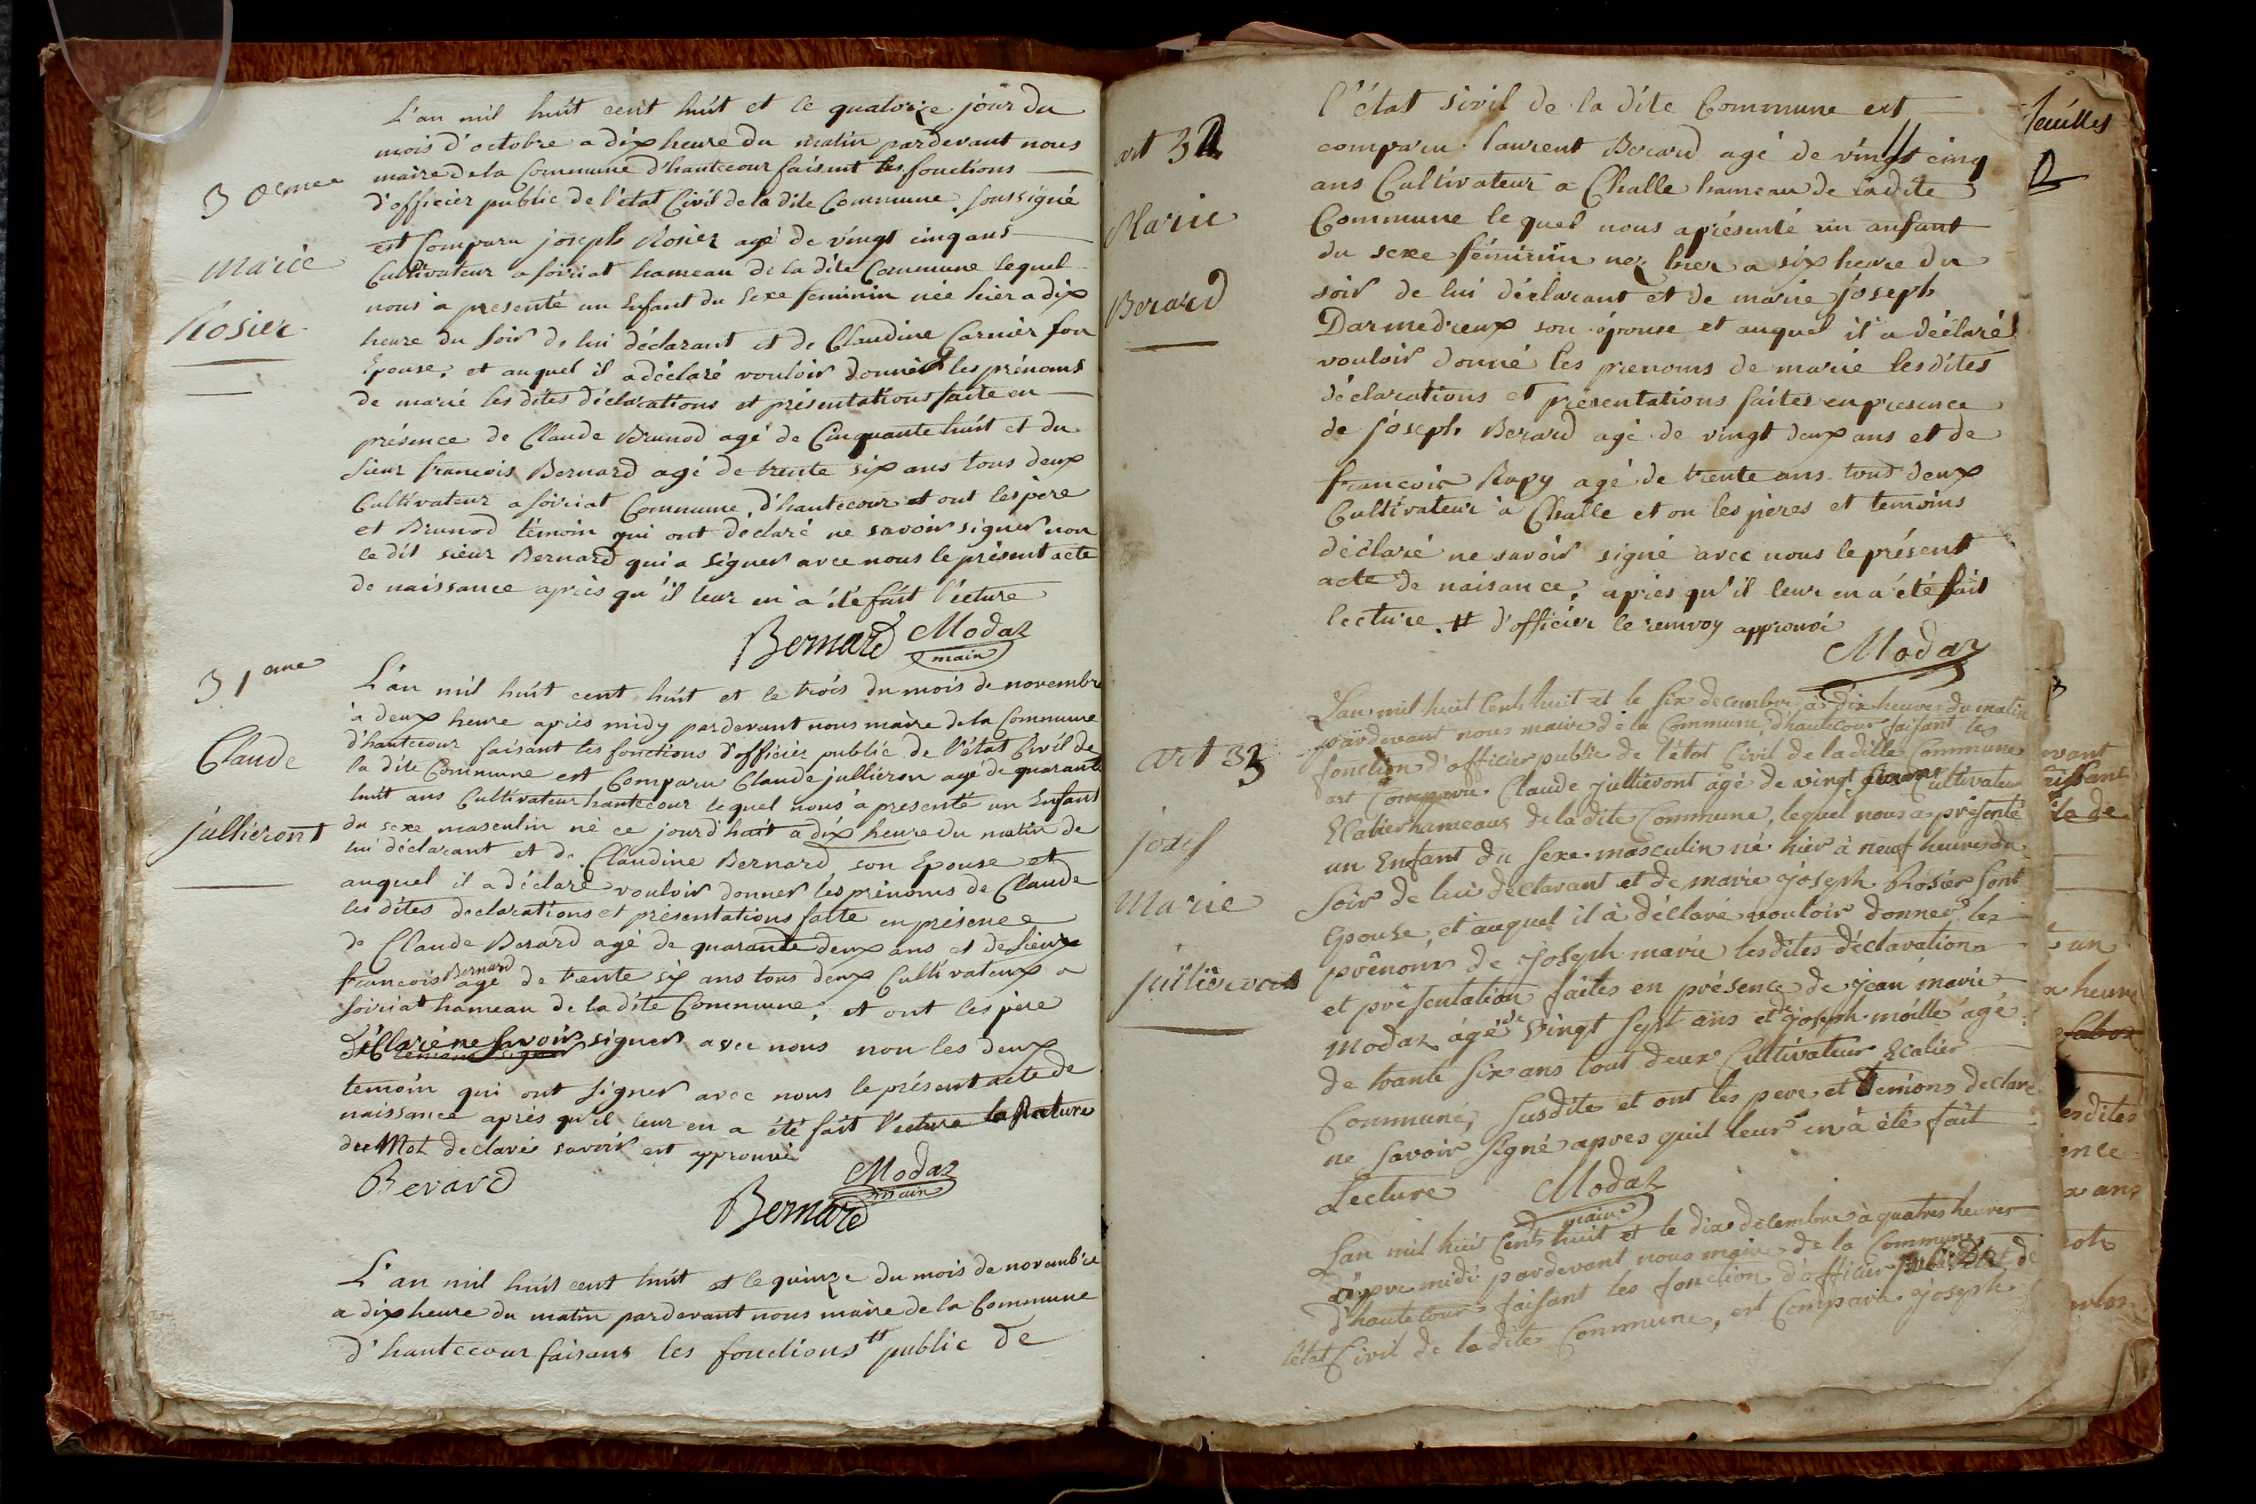 L'an mil huit cent huit et le quatorze jour du
mois d'octobre a dix heure du matin pardevant nous
maire de la Commune d'hautecour faisent les fonctions
d'officier public de l'état Civil de la dite Commune soussigné
est Comparu joseph Rosier agé de vingt cinq ans
Cultivateur a soiriat hameau de la dite Commune lequel
nous a presenté un Enfant du Sexe feminin née hier a dix
heure du soir de lui déclarant et de Claudine Carnier son
Epouse, et auquel il a déclaré vouloir donner les prénoms
de marie les dites déclarations et présentations faite en
présence de Claude Brunod agé de Cinquante huit et du
sieur francois Bernard agé de trente six ans tous deux
Cultivateur a soiriat Commune d'hautecour et ont les père
et Brunod témoin qui ont declaré ne savoir signer non
le dit sieur Bernard qui a signer avec nous le présent acte
de naissance après qu'il leur en a été fait l'ecture
Bernard Modaz
main
30eme
marie
Rosier
31eme
Claude
jullieront
L'an mil huit cent huit et le trois du mois de novembre
à deux heure après midy pardevant nous maire de la Commune
d'hautecour faisant les fonctions d'officier public de l'état Civil de
la dite Commune est Comparu Claude jullieron agé de quarante
huit ans Cultivateur hautecour lequel nous a presenté un Enfant
du sexe masculin né ce jourd'huit a dix heure du matin de
lui déclarant et de Claudine Bernard son Epouse et
auquel il a déclaré vouloir donner les prénoms de Claude
les dites declarations et présentations faite en présence
de Claude Berard agé de quarante deux ans et de sieur
francois Bernard agé de trente six ans tous deux Cultivateur a
soiriat hameau de la dite Commune, et ont les père
déclaré ne savoir signer avec nous non les deux
temoin qui ont signer avec nous le présent acte de
naissance après qu'il leur en a été fait l'ecture
du Mot declaré savoir est approuvé
Berard
Modaz
main
Bernard
L'an mil huit cent huit et le quinze du mois de novembre
a dix heure du matin pardevant nous maire de la Commune
d'hautecour faisans les fonctions # public de
l'état sivil de la dite Commune est
comparu laurent Berard agé de vingt cinq
ans Cultivateur a Challe hameau de la dite
Commune le quel nous a présenté un anfant
du sexe féminin nez hier a six heure du
soir de lui déclarant et de marie joseph
Darmedieux son épouse et auquel il a déclaré
vouloir donné les prenoms de marie les dites
déclarations et présentations faites en presence
de joseph Berard agé de vingt deux ans et de
francois Rapy agé de trente ans tout deux
Cultivateur a Challe et on les pères et temoins
déclaré ne savoir signé avec nous le présent
acte de naisance, après qu'il leur en a été fait
lecture. # d'officier le remvoy approuvé
Modaz
art 32
Marie
Berard
feuilles
art 33
josef
Marie
jullieront
L'an mil huit Cent huit et le six decembre à dix heures du matin
pardevant nous maire de la Commune d'hautecour faisant les
fonction d'officier public de l'étot Civil de la ditte Commune
est Comparu Claude jullieront agé de vingt Cultivateur
Ecatier hameaux de la dite Commune, lequel nous a présenté
un Enfant du sexe masculin né hier à neuf heures du
soir de lui déclarant et de marie joseph Rosier sont
epouse, et auquel il à déclaré vouloir donner les
prénoms de joseph marie les dites déclarations
et présentation faites en présence de jean marie
Modaz agé de vingt sept ans et de joseph moille agé
de trante six ans tout deux Cultivateur Ecatier
Commune, susdite et ont les pere et temions declaré
ne savoir signé apres quil leur en à été fait
Lecture
Modaz
maire
Lan mil huit Cent huit et le dix decembre à quatres heures
apre midi pardevant nous maire de la Commune
d'hautecour faisant les fonction d'officier public de
létat Civil de la dite Commune, est Comparu joseph